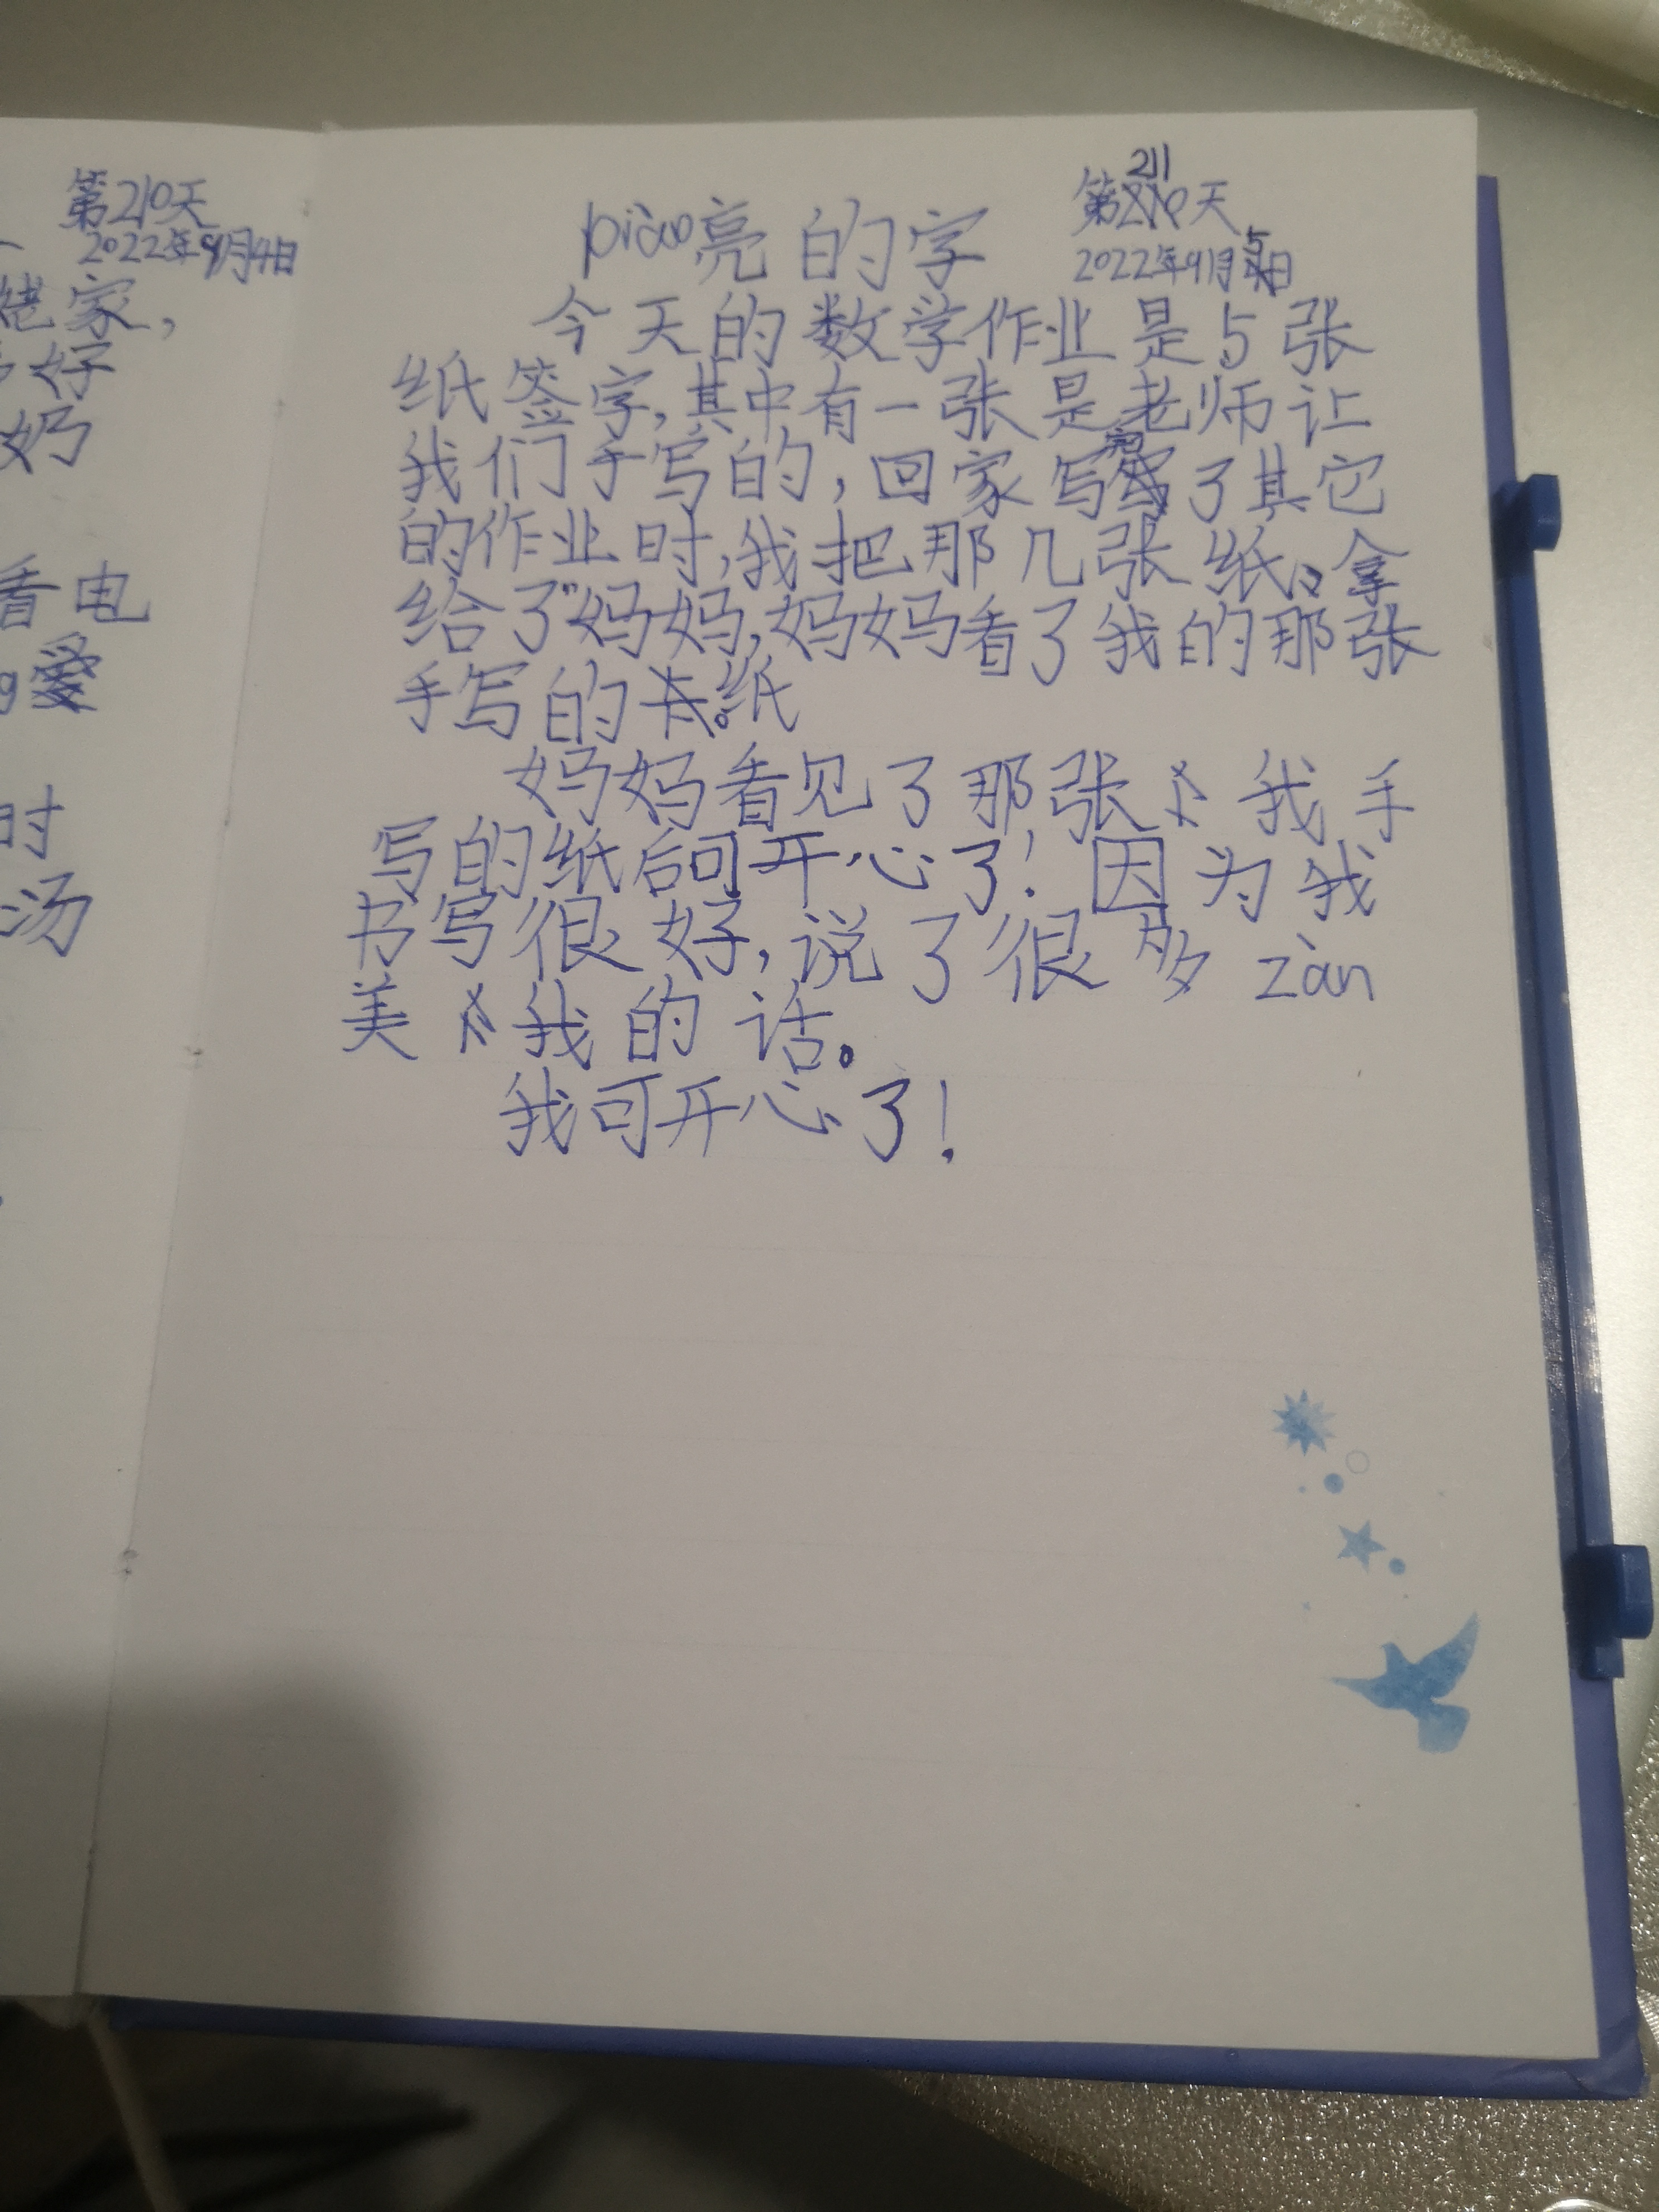 第210天
2022年9月4日
家,
好
奶
看电
时
汤
piào亮的字
第211天
2022年9月5日
今天的数学作业是5张
纸签字,其中有一张是老师让
我们手写的,回家写完了其它
的作业时,我把那几张纸拿
给了妈妈,妈妈看了我的那张
手写的纸。
妈妈看见了那张我手
写的纸后可开心了!因为我
书写很好,说了很多zàn
美我的话。
我可开心了!